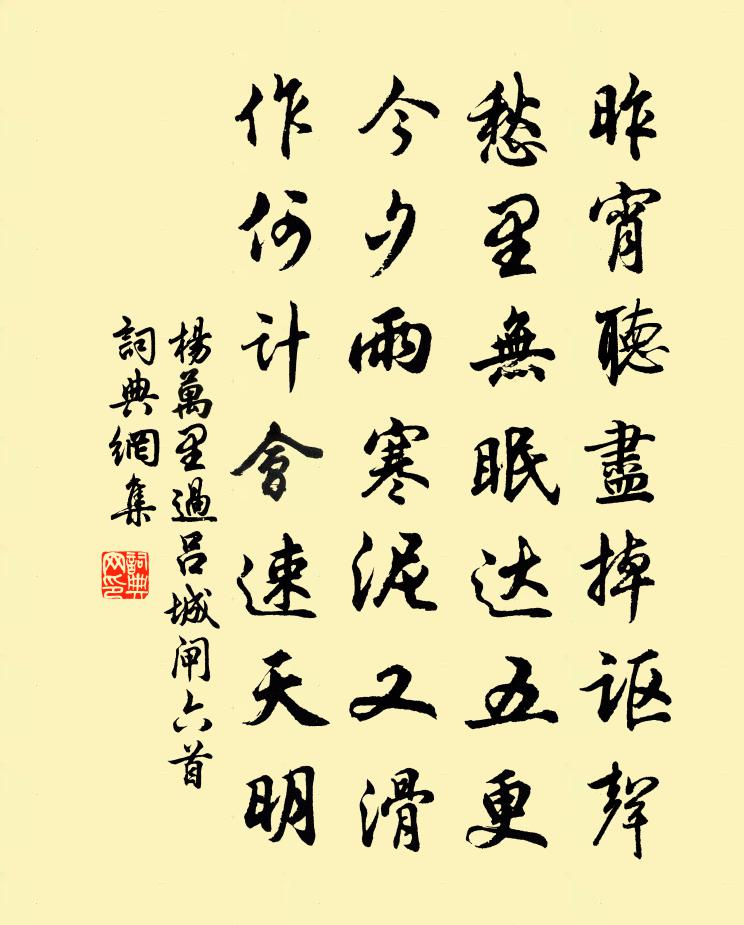 昨宵聽盡掉讴聲
愁里無眠达五更
今夕雨寒泥又滑
作何計會速天明
楊萬里過呂城闸六首
詞典網集
詞典
网印